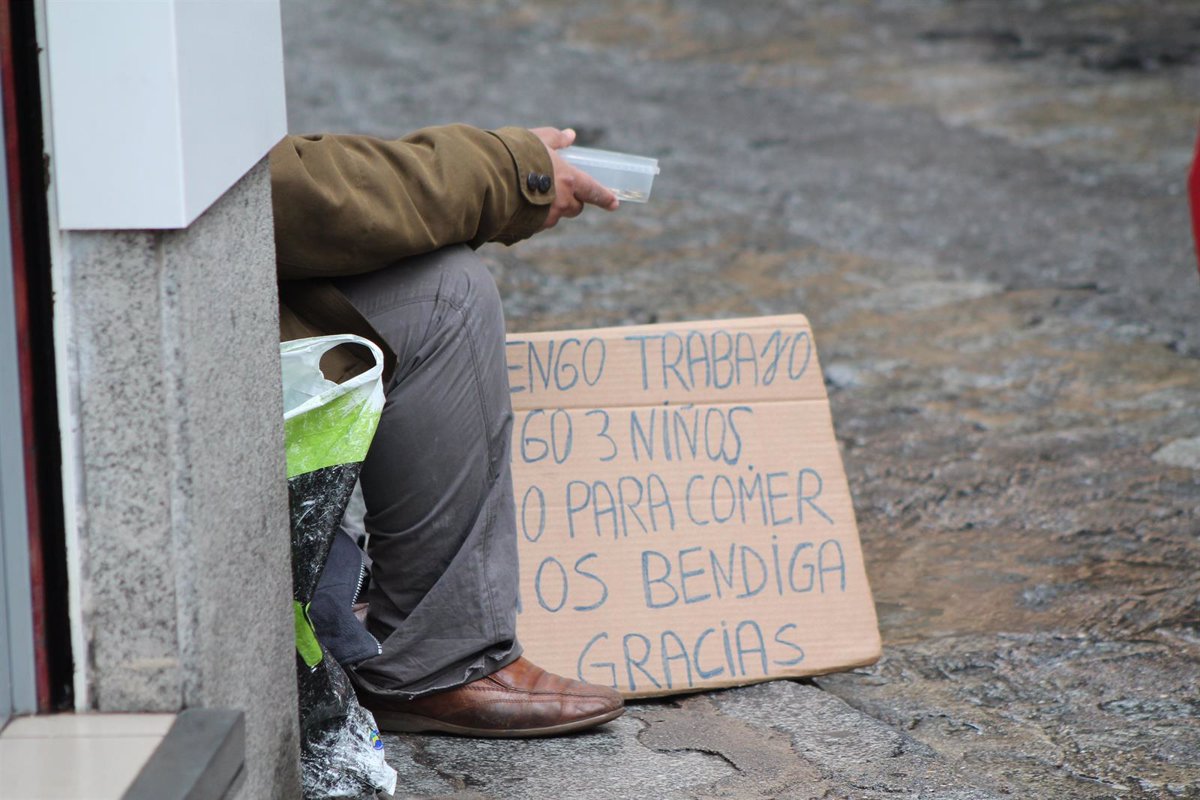 ENGO TRABAJO
GO 3 NIÑOS.
O PARA COMER
OS BENDIGA
GRACIAS